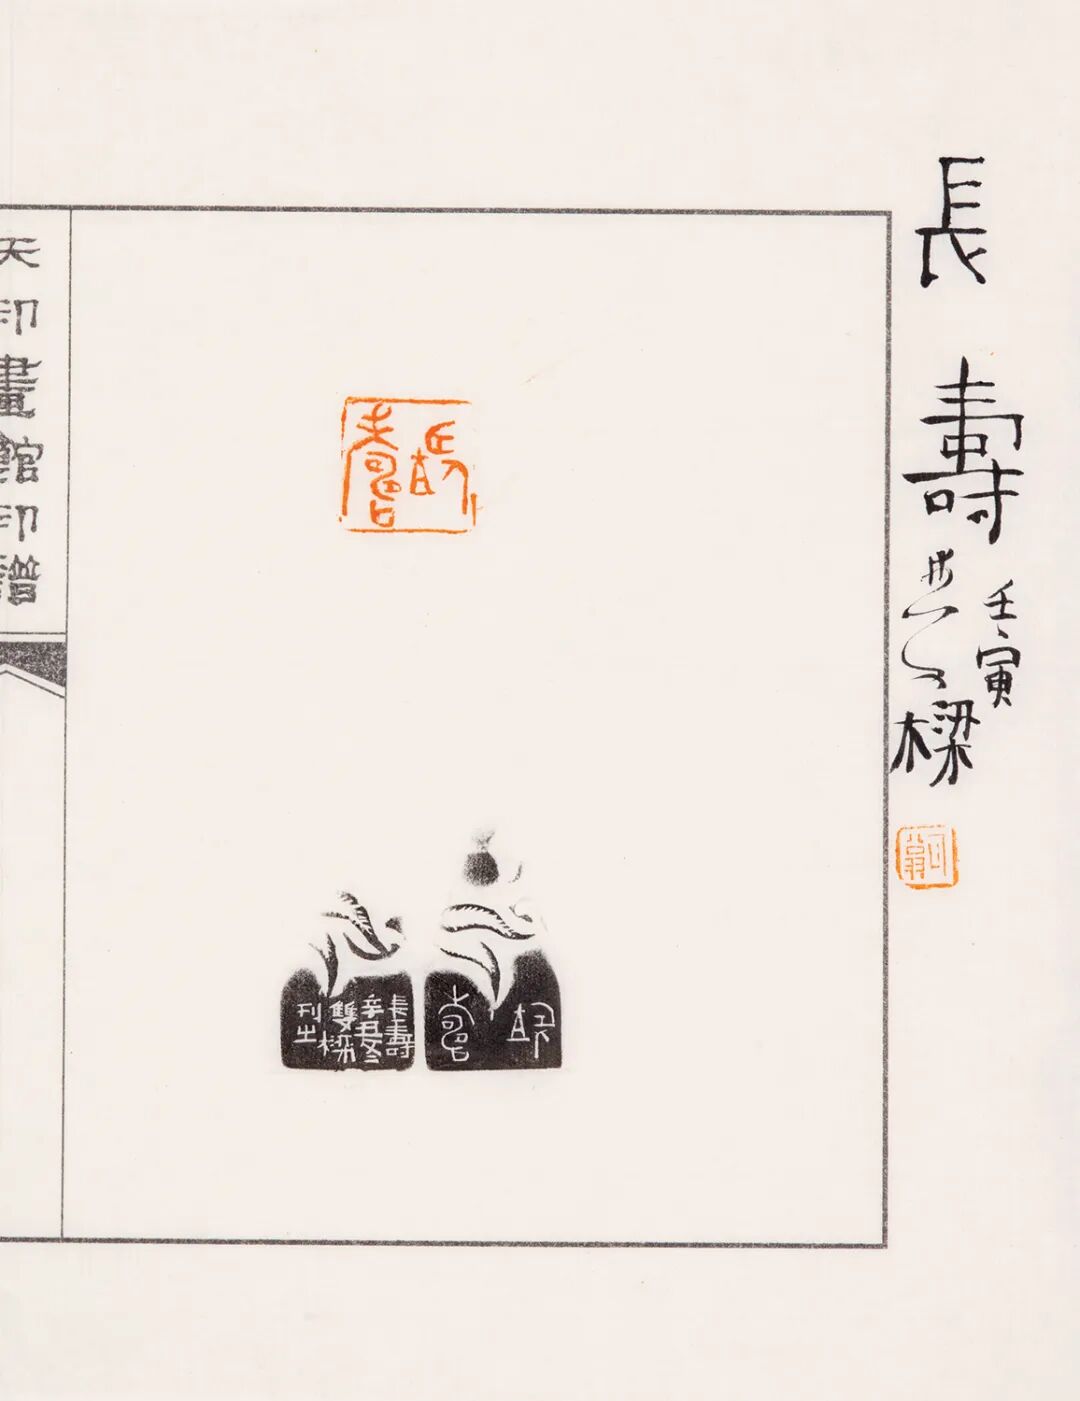 長壽
壬寅
樑
長壽
長壽
長壽
辛丑冬
雙樑
刊之
天印畫館印譜